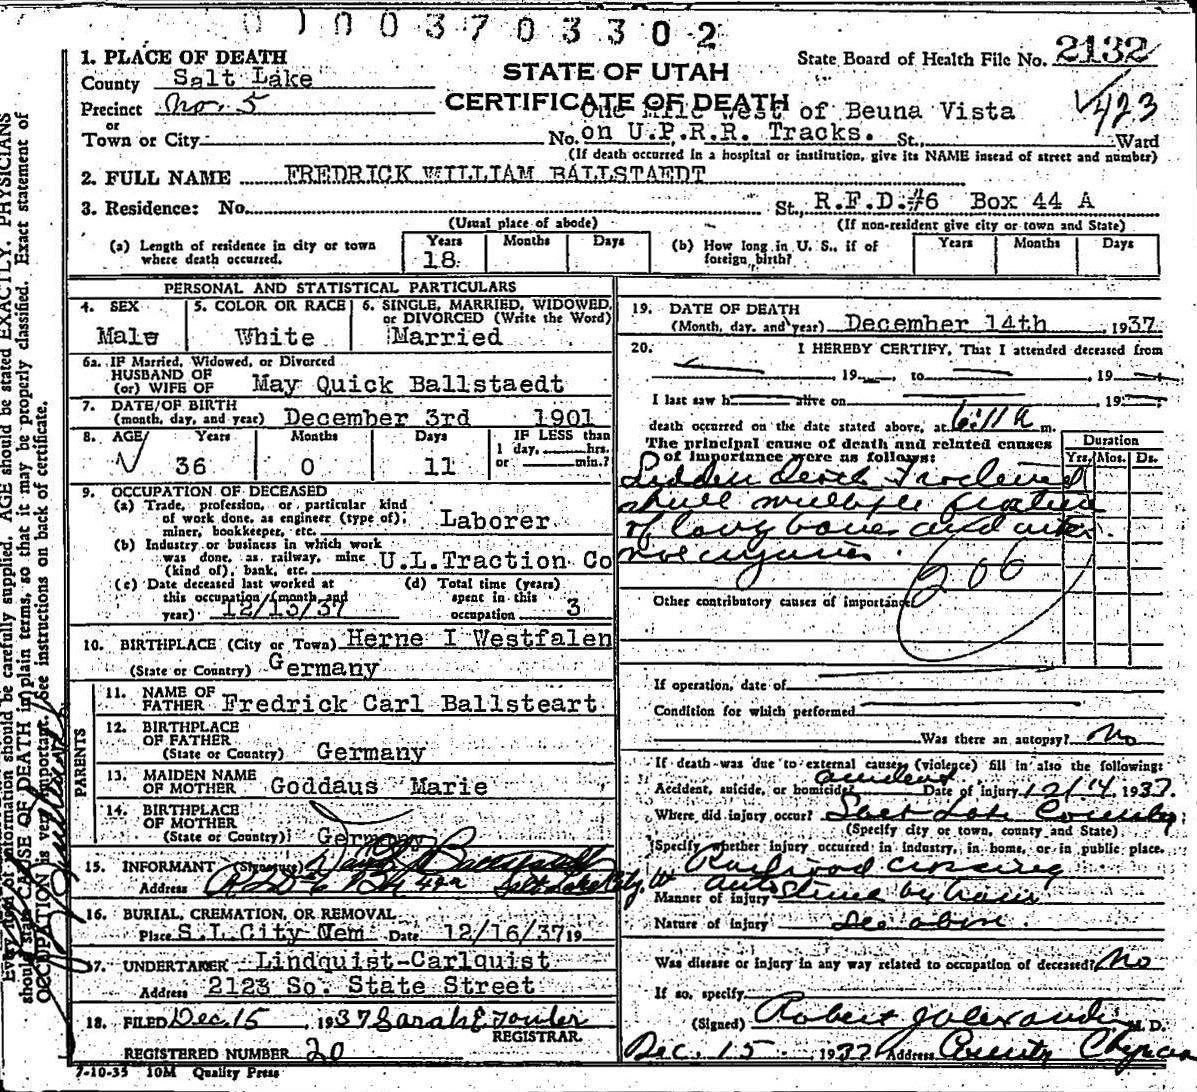 0 1 0 0 3 7 0 3 3 0 2
1. PLACE OF DEATH
County Salt Lake
Precinct No. 5
or
Town or City
STATE OF UTAH
CERTIFICATE OF DEATH
State Board of Health File No. 2132
423
One Mile West of Beuna Vista
No. on U.P.R.R. Tracks. St., Ward
(If death occurred in a hospital or institution, give its NAME insead of street and number)
2. FULL NAME FREDRICK WILLIAM BALLSTAEDT
3. Residence: No. St., R.F.D.#6 Box 44 A
(Usual place of abode) (If non-resident give city or town and State)
(a) Length of residence in city or town where death occurred. Years 18 Months Days
(b) How long in U. S., if of foreign birth? Years Months Days
PERSONAL AND STATISTICAL PARTICULARS
4. SEX Male
5. COLOR OR RACE White
6. SINGLE, MARRIED, WIDOWED, or DIVORCED (Write the Word) Married
6a. IF Married, Widowed, or Divorced
HUSBAND OF
(or) WIFE OF May Quick Ballstaedt
7. DATE OF BIRTH
(month, day, and year) December 3rd 1901
8. AGE Years 36 Months 0 Days 11 IF LESS than 1 day, hrs. or min.?
9. OCCUPATION OF DECEASED
(a) Trade, profession, or particular kind
of work done, as engineer (type of),
miner, bookkeeper, etc. Laborer
(b) Industry or business in which work
was done, as railway, mine
(kind of), bank, etc. U.L.Traction Co
(c) Date deceased last worked at
this occupation (month and
year) 12/13/37
(d) Total time (years)
spent in this
occupation 3
10. BIRTHPLACE (City or Town) Herne I Westfalen
(State or Country) Germany
PARENTS
11. NAME OF
FATHER Fredrick Carl Ballsteart
12. BIRTHPLACE
OF FATHER
(State or Country) Germany
13. MAIDEN NAME
OF MOTHER Goddaus Marie
14. BIRTHPLACE
OF MOTHER
(State or Country) Germany
15. INFORMANT (Signature) Ballstaedt
Address Salt Lake City, Ut
16. BURIAL, CREMATION, OR REMOVAL
Place S.L.City Mem. Date 12/16/37 19
17. UNDERTAKER Lindquist-Carlquist
Address 2123 So. State Street
18. FILED Dec. 15 1937 Sarah E Fowler
REGISTRAR.
REGISTERED NUMBER 20
7-10-35 10M Quality Press
19. DATE OF DEATH
(Month, day, and year) December 14th 1937
20. I HEREBY CERTIFY, That I attended deceased from
, 19 to , 19
I last saw h alive on , 19
death occurred on the date stated above, at 6:11 A m.
The principal cause of death and related causes
of importance were as follows:
Duration
Yrs. Mos. Ds.
Sudden death Fractured
skull multiple fracture
of long bones and inter
nal injuries.
206
Other contributory causes of importance
If operation, date of
Condition for which performed
Was there an autopsy? No
If death was due to external causes (violence) fill in also the following:
Accident, suicide, or homicide? accident Date of injury 12/14 1937
Where did injury occur? Salt Lake County
(Specify city or town, county and State)
Specify whether injury occurred in industry, in home, or in public place.
Railroad crossing
Manner of injury auto struck by train
Nature of injury See above.
Was disease or injury in any way related to occupation of deceased? No
If so, specify
(Signed) Robert J Alexander M. D.
Dec. 15 1937 Address County Physician
Every item of information should be carefully supplied. AGE should be stated EXACTLY. PHYSICIANS
should state CAUSE OF DEATH in plain terms, so that it may be properly classified. Exact statement of
OCCUPATION is very important. See instructions on back of certificate.